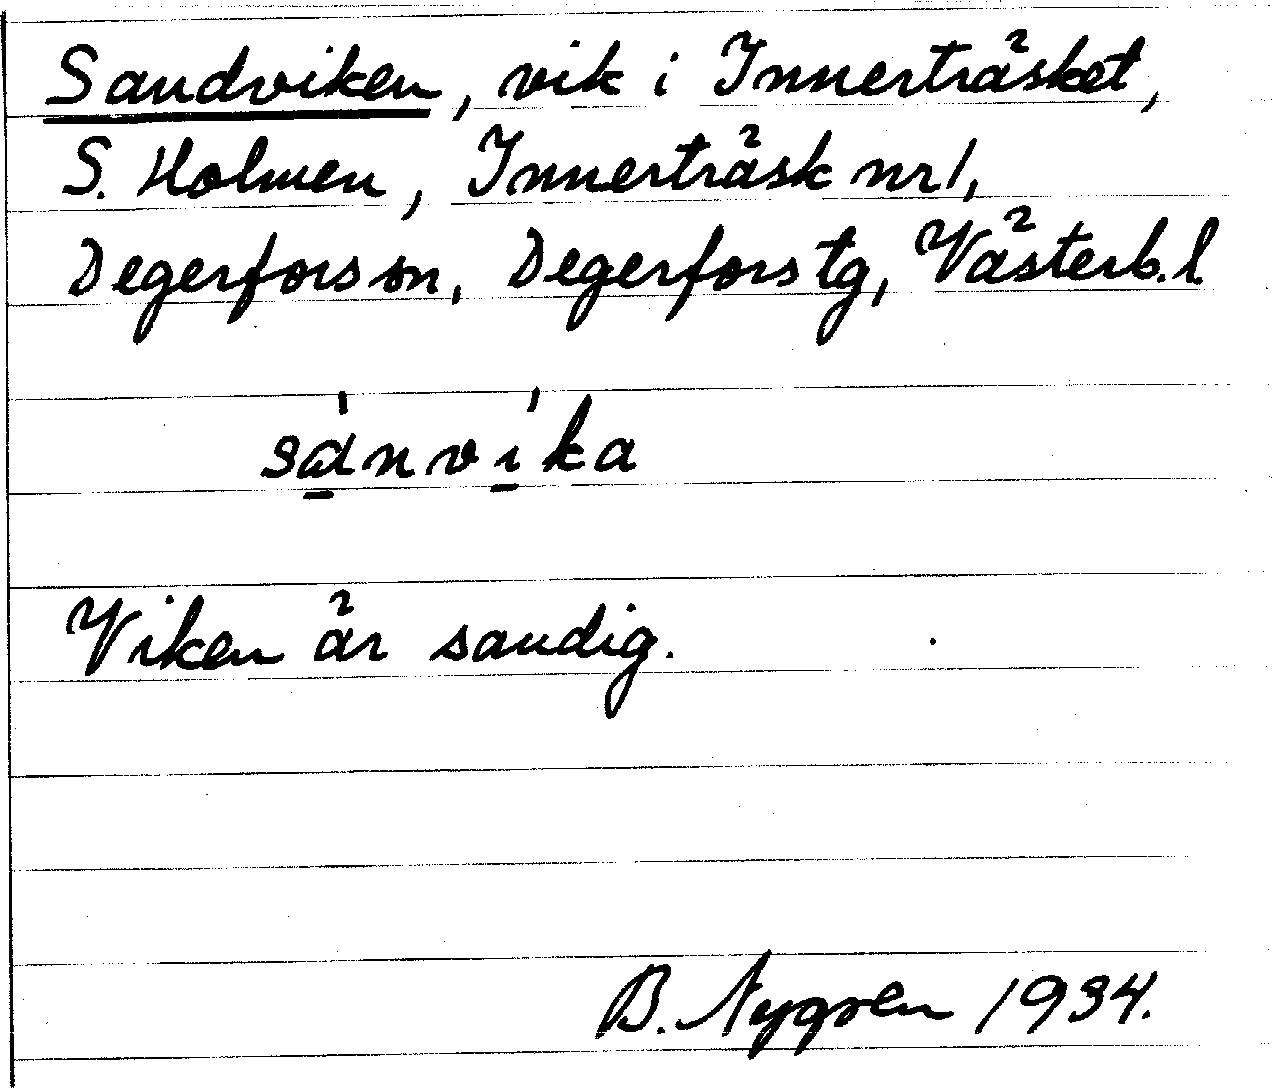 Sandviken, vik i Innerträsket,
S. Holmen, Innerträsk nr 1,
Degerfors sn, Degerfors tg, Västerb. l
sa̲̍nvi̲̍ka
Viken är sandig.
B. Nygren 1934.